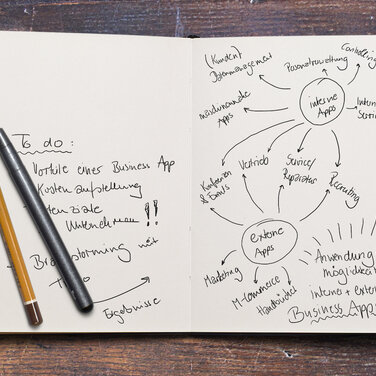 To do:
Vorteile einer Business App
Kostenaufstellung
Potenziale
Unternehmen !!
Brainstorming mit
Ergebnisse
(Kunden)
Datenmanagement
Personalverwaltung
Controlling
interne
Apps
Apps
Konferenzen
& Events
Vertrieb
Service/
Reparatur
Recruiting
externe
Apps
Marketing
M-Commerce
Anwendung
möglichkeit
interner + extern
Business Apps